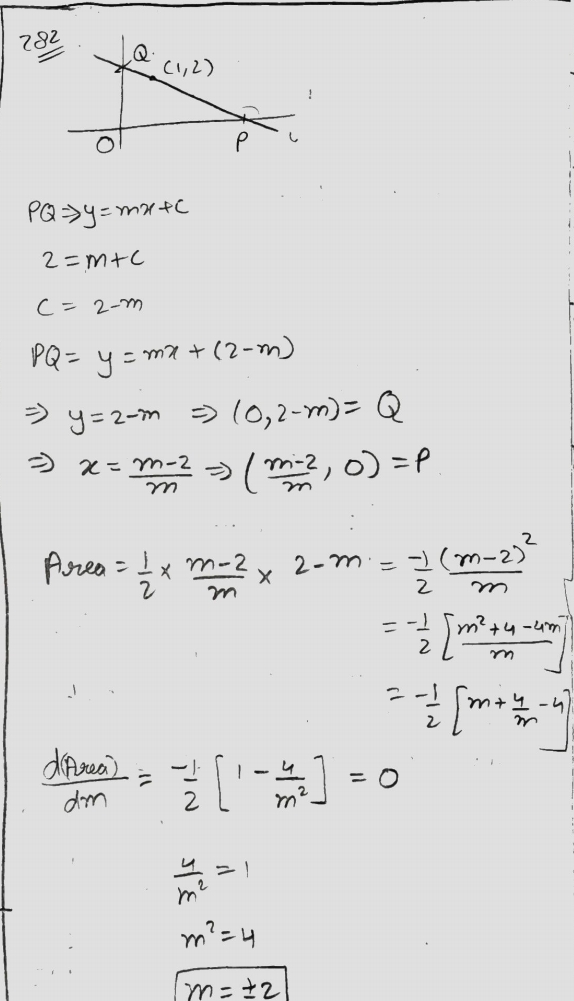 282
Q
(1,2)
O P L
PQ⇒y=mx+c
2=m+c
c= 2-m
PQ= y=mx+(2-m)
⇒ y=2-m ⇒ (0,2-m)= Q
⇒ x= \frac{m-2}{m} ⇒ (\frac{m-2}{m}, 0) = P
Area = \frac{1}{2} × \frac{m-2}{m} × 2-m = \frac{-1}{2} \frac{(m-2)^2}{m}
= \frac{-1}{2} [\frac{m^2+4-4m}{m}]
= \frac{-1}{2} [m+\frac{4}{m}-4]
\frac{d(Area)}{dm} = \frac{-1}{2} [1-\frac{4}{m^2}] = 0
\frac{4}{m^2} = 1
m^2=4
m=±2